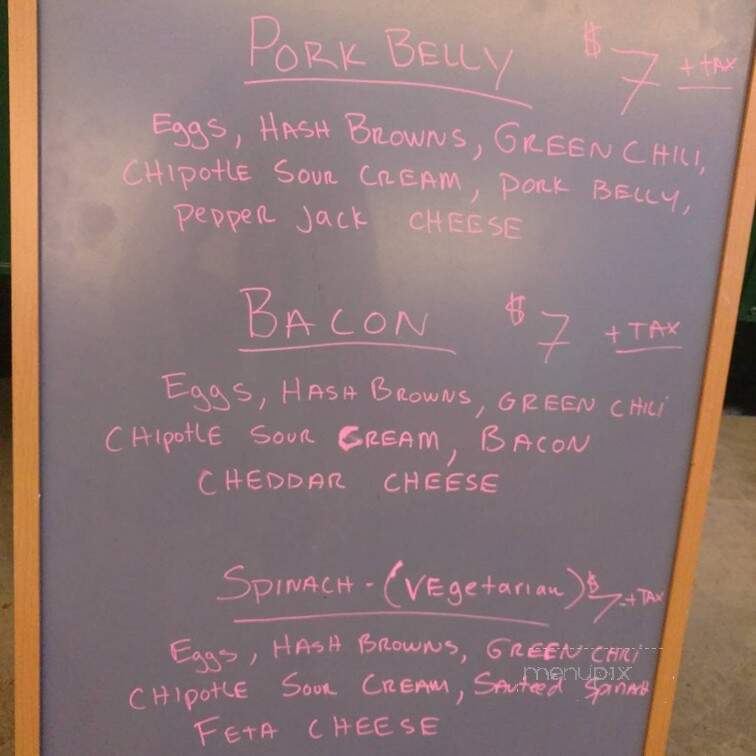 PORK BELLY $7 + TAX
Eggs, HASH BROWNS, GREEN CHILI,
CHIPOTLE SOUR CREAM, PORK BELLY,
PEPPER JACK CHEESE
BACON $7 + TAX
Eggs, HASH BROWNS, GREEN CHILI
CHIPOTLE SOUR CREAM, BACON
CHEDDAR CHEESE
SPINACH - (VEgetarian) $7 + TAX
Eggs, HASH BROWNS, GREEN CHILI
menupix
CHIPOTLE SOUR CREAM, SAUTEED SPINACH
FETA CHEESE